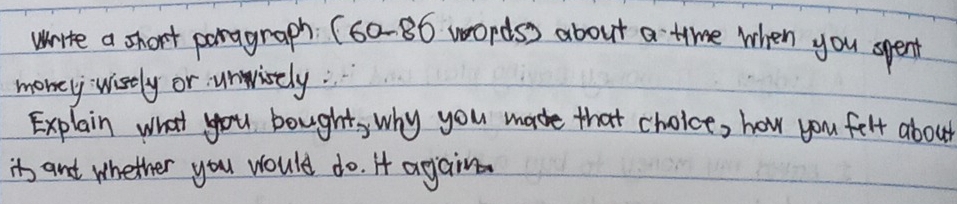 Write a short paragraph (60-80 words) about a time when you spent
money wisely or unwisely :
Explain what you bought, why you made that choice, how you felt about
it, and whether you would do. it again.